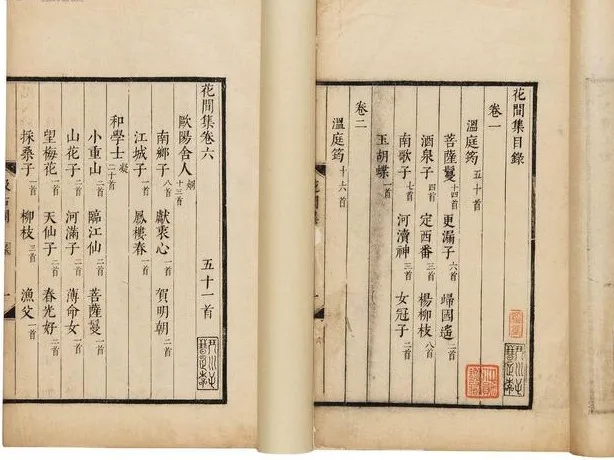 花間集目錄
卷一
溫庭筠 五十首
菩薩蠻 十四首 更漏子 六首 歸國遙 二首
酒泉子 四首 定西番 三首 楊柳枝 八首
南歌子 七首 河瀆神 三首 女冠子 二首
玉胡蝶 一首
卷二
溫庭筠 十六首
花間集卷六 五十一首
歐陽舍人 炯 十三首
南鄉子 八首 獻衷心 一首 賀明朝 二首
江城子 一首 鳳樓春 一首
和學士 凝 二十首
小重山 二首 臨江仙 二首 菩薩蠻 一首
山花子 二首 河滿子 二首 薄命女 一首
望梅花 一首 天仙子 二首 春光好 二首
採桑子 一首 柳枝 三首 漁父 一首